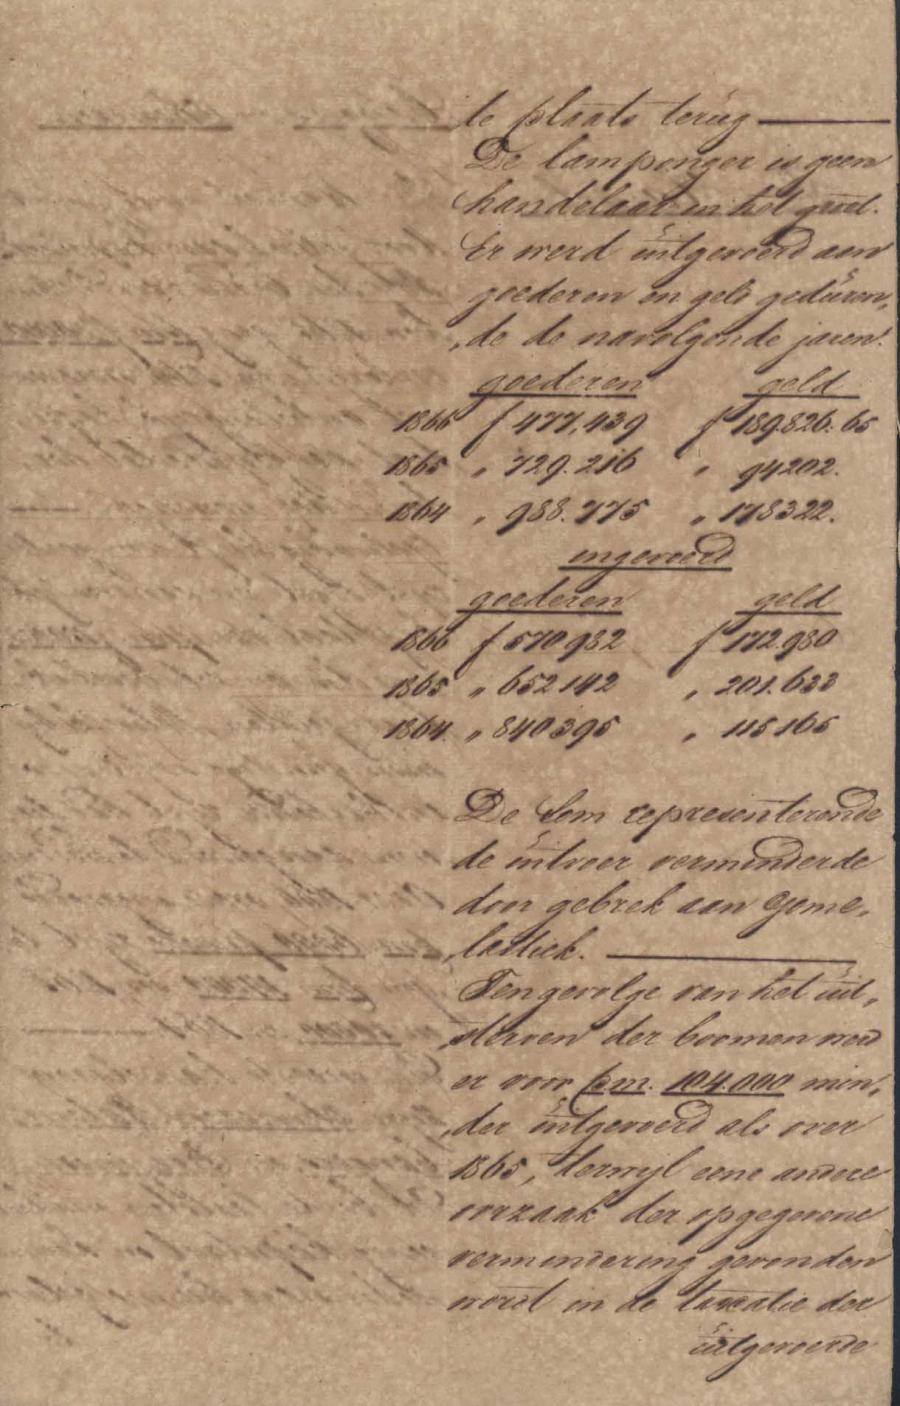 te plaats terug
De lamponger is geen
handelaar in het groot.
Er werd uitgevoerd aan
goederen en geld geduren„
„de de navolgende jaren.
goederen geld
1866 f 477,439 f 189.826.65
1865 „ 729.216 „ 94202.
1864 „ 988.775 „ 178322.
ingevoerd
goederen geld
1866 f 570982 f 172.980
1865 „ 652142 „ 201.633
1864. „ 840395 „ 115165
De Som representerende
de uitvoer verminderde
door gebrek aan Gome„
„lastiek.
Tengevolge van het uit„
„sterven der boomen werd
er voor pm. 104.000 min„
„der uitgevoerd als over
1865, terwyl eene andere
oorzaak der opgegevene
vermindering gevonden
word in de taxatie der
uitgevoerde